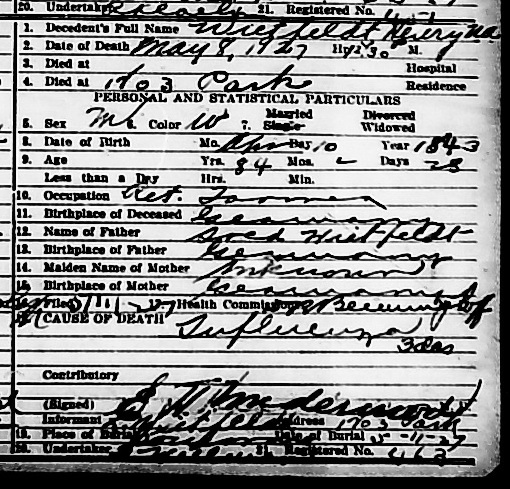 20. Undertaker 21. Registered No.
1. Decedent's Full Name Wietfeldt Henry
2. Date of Death May 8, 1927 Hr. 12:30 M.
3. Died at Hospital
4. Died at 1703 Park Residence
PERSONAL AND STATISTICAL PARTICULARS
5. Sex M 6. Color W 7. Married Single Divorced Widowed
8. Date of Birth Mo. Apr Day 10 Year 1843
9. Age Yrs. 84 Mos. - Days 28
Less than a Day Hrs. Min.
10. Occupation Ret. Farmer
11. Birthplace of Deceased Germany
12. Name of Father Wietfeldt
13. Birthplace of Father Germany
14. Maiden Name of Mother Unknown
15. Birthplace of Mother Germany
16. Filed 5/11-27 Health Commissioner
17. CAUSE OF DEATH Influenza
3 das
Contributory
(Signed)
Informant Wietfeldt Address 1703 Park
18. Place of Burial Date of Burial 5-11-27
20. Undertaker 21. Registered No. 463